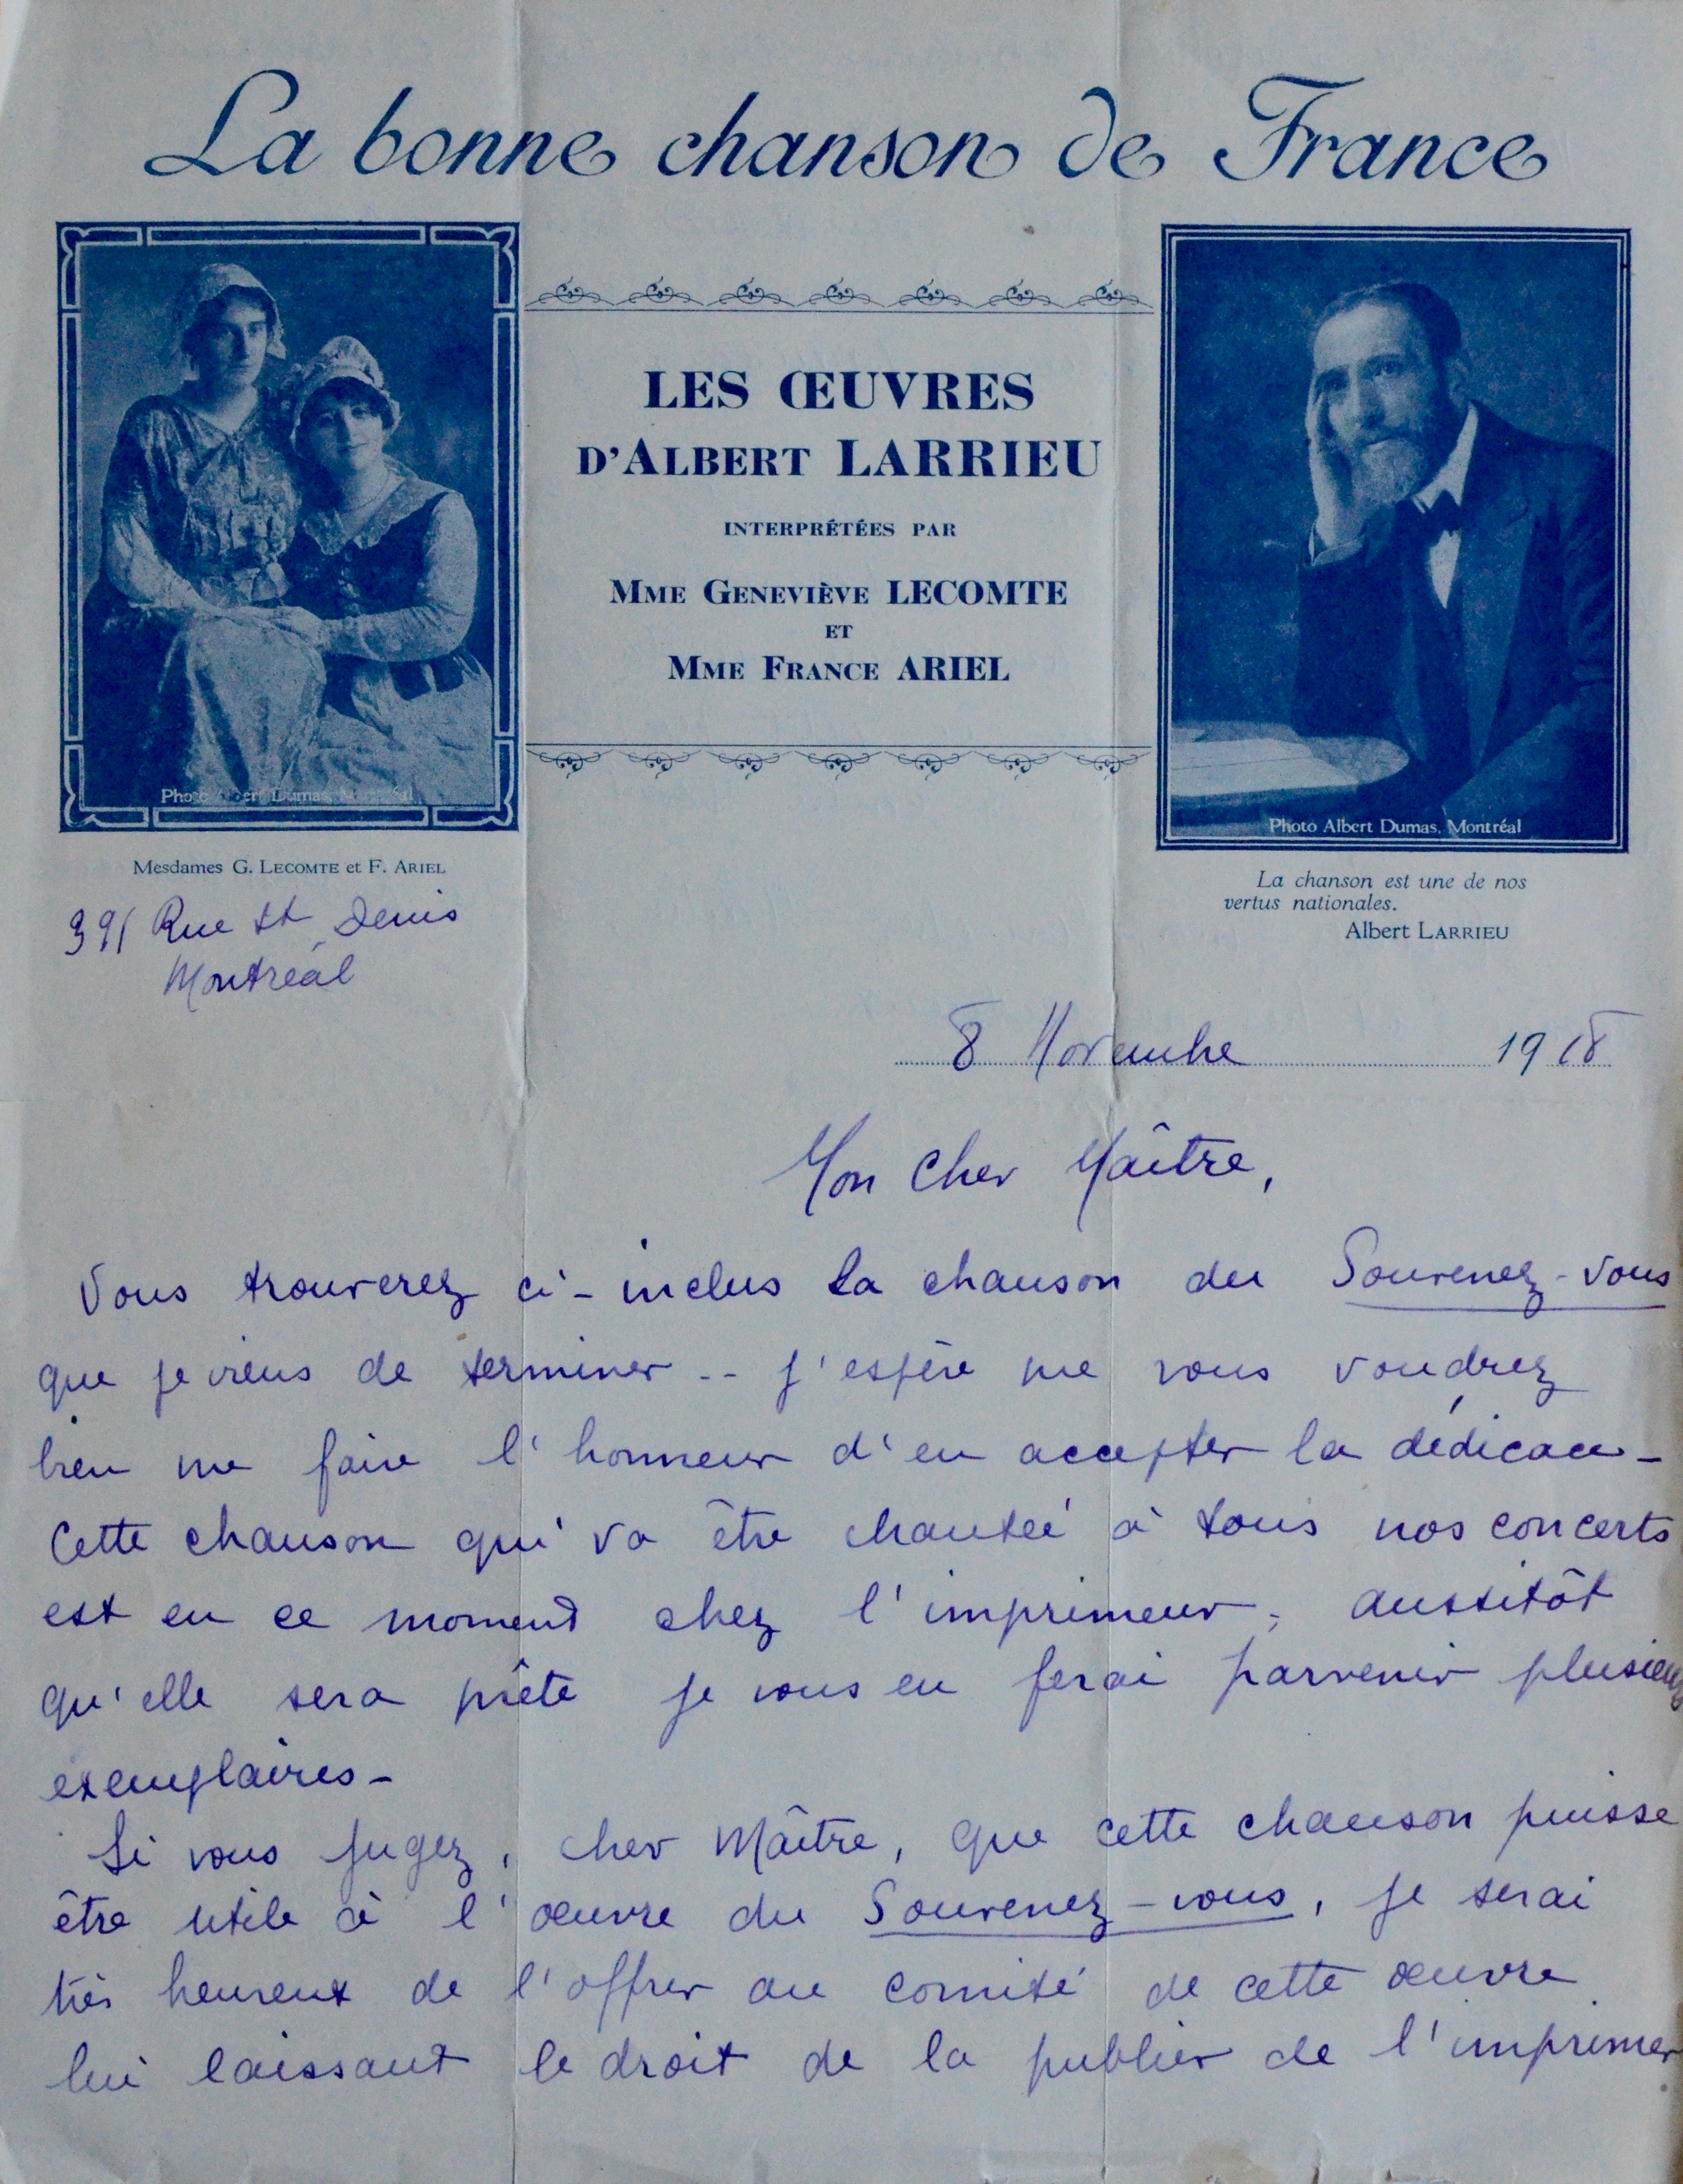 La bonne chanson de France
LES ŒUVRES
D'ALBERT LARRIEU
INTERPRÉTÉES PAR
MME GENEVIÈVE LECOMTE
ET
MME FRANCE ARIEL
Photo Albert Dumas, Montréal
Photo Albert Dumas, Montréal
Mesdames G. LECOMTE et F. ARIEL
La chanson est une de nos
vertus nationales.
Albert LARRIEU
391 Rue St Denis
Montréal
8 Novembre 1918
Mon Cher Maître,
Vous trouverez ci-inclus la chanson du Souvenez-vous
que je viens de terminer -- j'espère que vous voudrez
bien me faire l'honneur d'en accepter la dédicace -
Cette chanson qui va être chantée à tous nos concerts
est en ce moment chez l'imprimeur, aussitôt
qu'elle sera prête je vous en ferai parvenir plusieurs
exemplaires -
Si vous jugez, cher Maître, que cette chanson puisse
être utile à l'œuvre du Souvenez-vous, je serai
très heureux de l'offrir au comité de cette œuvre
lui laissant le droit de la publier de l'imprimer